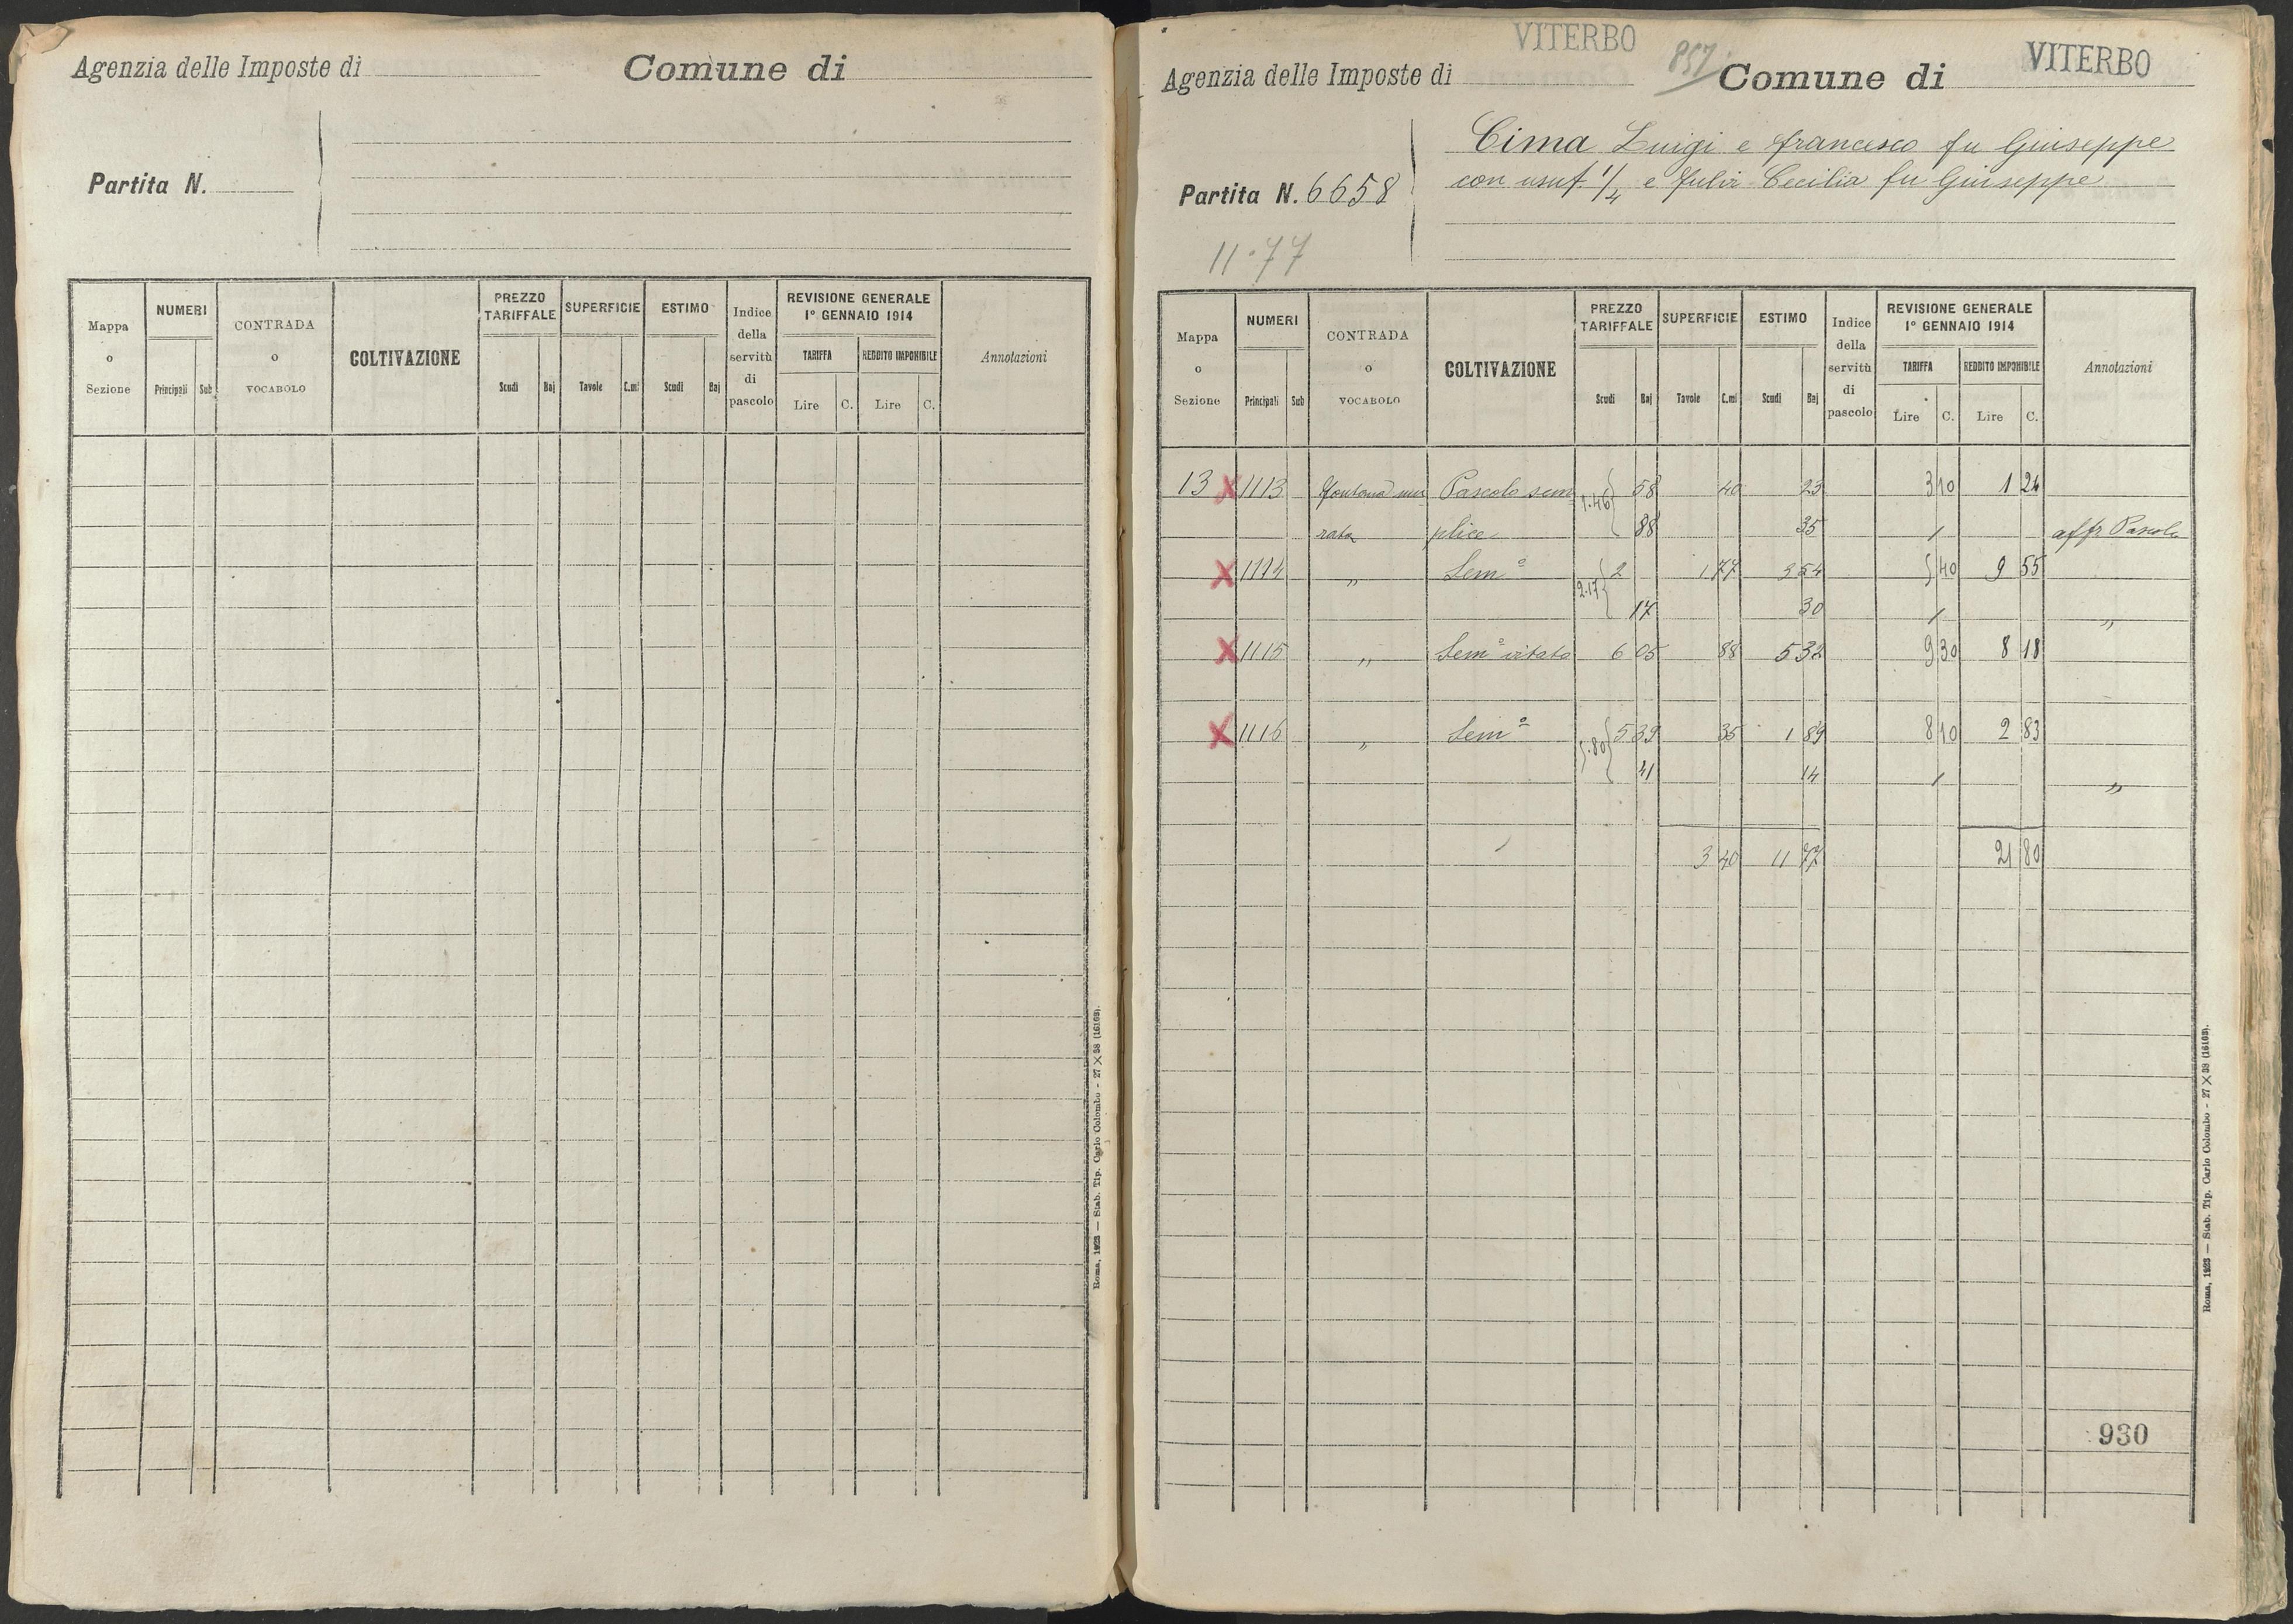 Agenzia delle Imposte di
Comune di
Partita N.
Mappa o Sezione
NUMERI
Principali Sub
CONTRADA o VOCABOLO
COLTIVAZIONE
PREZZO TARIFFALE
Scudi Baj
SUPERFICIE
Tavole C.mi
ESTIMO
Scudi Baj
Indice della servitù di pascolo
REVISIONE GENERALE
1º GENNAIO 1914
TARIFFA REDDITO IMPONIBILE
Lire C. Lire C.
Annotazioni
Roma, 1923 — Stab. Tip. Carlo Colombo - 27 X 38 (16163).
VITERBO
857
VITERBO
Agenzia delle Imposte di
Comune di
Cima Luigi e Francesco fu Giuseppe
Partita N. 6658
con usuf. 1/4 e Fulvi Cecilia fu Giuseppe
11.77
Mappa o Sezione
NUMERI
Principali Sub
CONTRADA o VOCABOLO
COLTIVAZIONE
PREZZO TARIFFALE
Scudi Baj
SUPERFICIE
Tavole C.mi
ESTIMO
Scudi Baj
Indice della servitù di pascolo
REVISIONE GENERALE
1º GENNAIO 1914
TARIFFA REDDITO IMPONIBILE
Lire C. Lire C.
Annotazioni
13 X 1113 Fontana mu Pascolo sem 1.46 { 58 40 23 3 10 1 24
rata plice 88 35 / affr Pascolo
X 1114 " Sem.º 2.17 { 2 1 77 3 54 5 40 9 55
17 30 / "
X 1115 " Sem.º vitato 6 05 88 5 32 9 30 8 18
X 1116 " Sem.º 5.80 { 5 39 35 1 89 8 10 2 83
41 14 / "
3 40 11 77 21 80
930
Roma, 1923 — Stab. Tip. Carlo Colombo - 27 X 38 (16163).